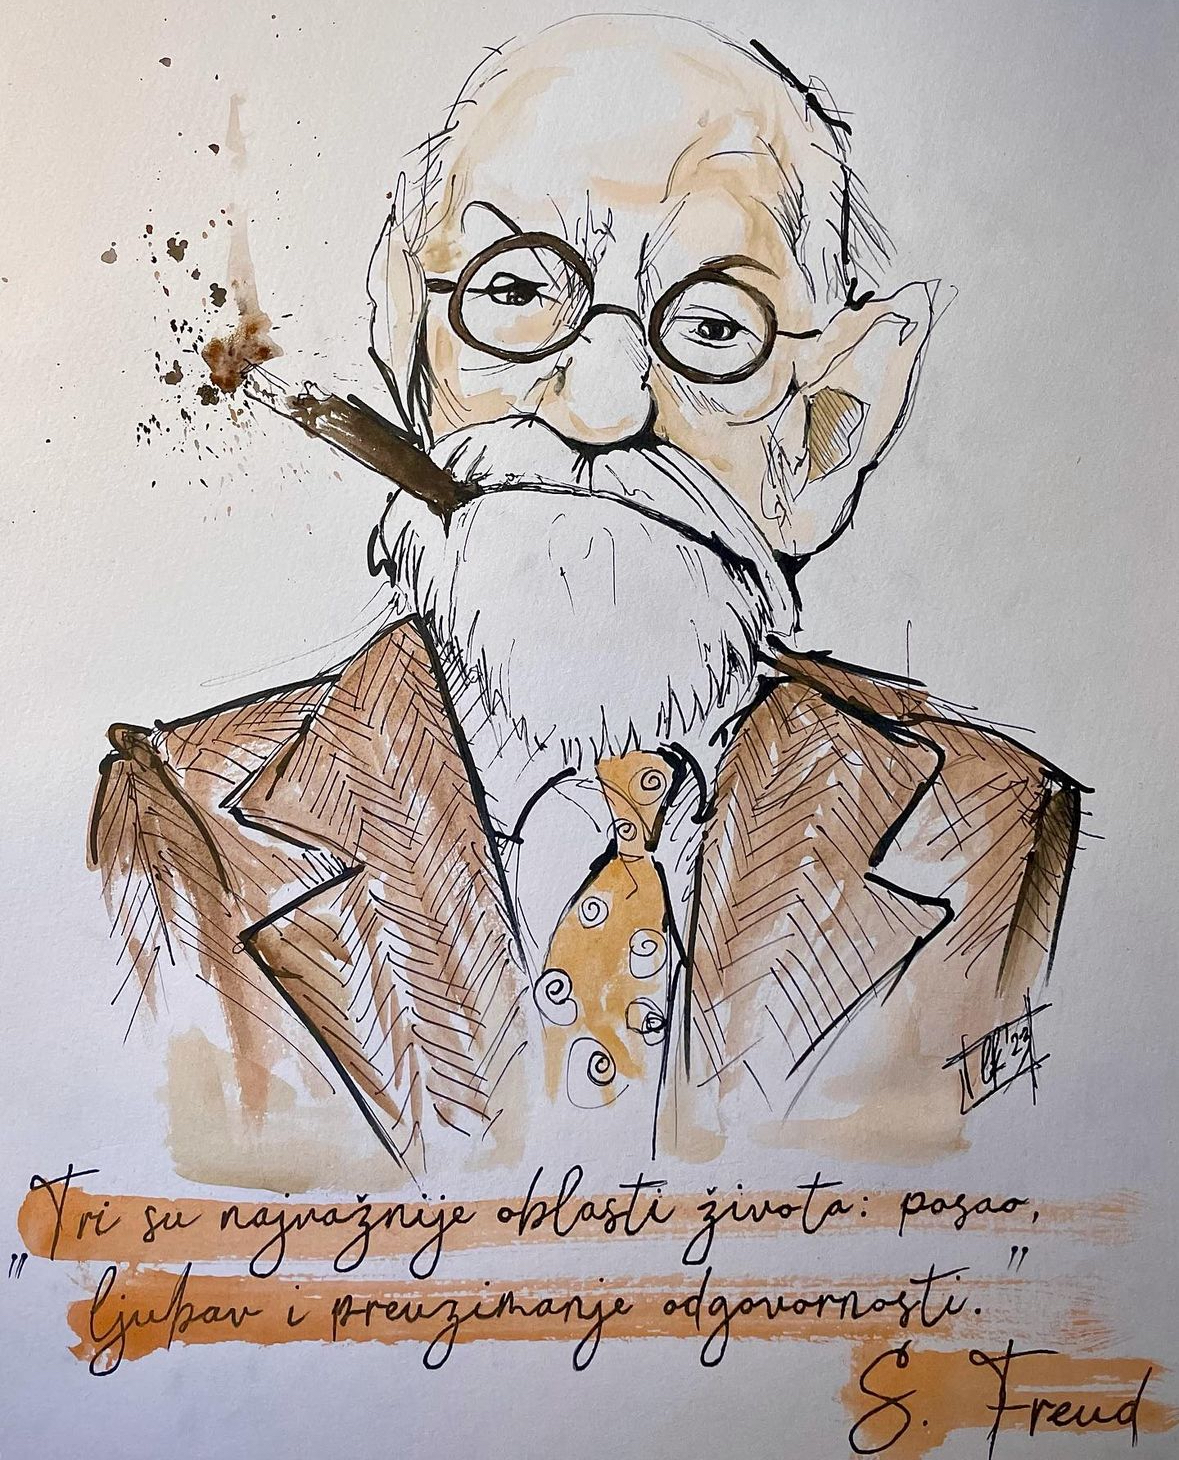 '23
„Tri su najvažnije oblasti života: posao,
ljubav i preuzimanje odgovornosti."
S. Freud